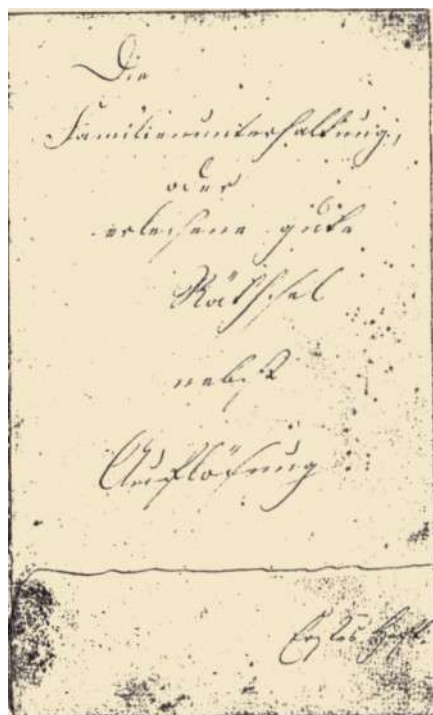 Die
Familienunterhaltung,
oder
erlesene gute
Räthsel
nebst
Auflösung
Erstes Heft